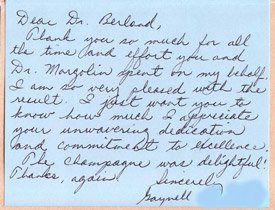 Dear Dr. Berland,
Thank you so much for all
the time and effort you and
Dr. Margolin spent on my behalf.
I am so very pleased with the
result. I just want you to
know how much I appreciate
your unwavering dedication
and commitment to excellence.
The champagne was delightful!
Thanks, again. Sincerely,
Gaynell